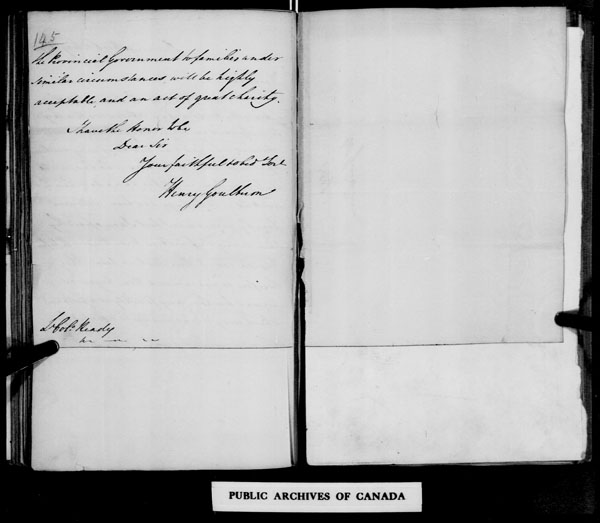 145
the Provincial Government to families under
similar circumstances will be highly
acceptable and an act of great charity.
I have the Honor to be
Dear Sir
Your faithful & obed Sert
Henry Goulburn
Lt Col. Ready
PUBLIC ARCHIVES OF CANADA